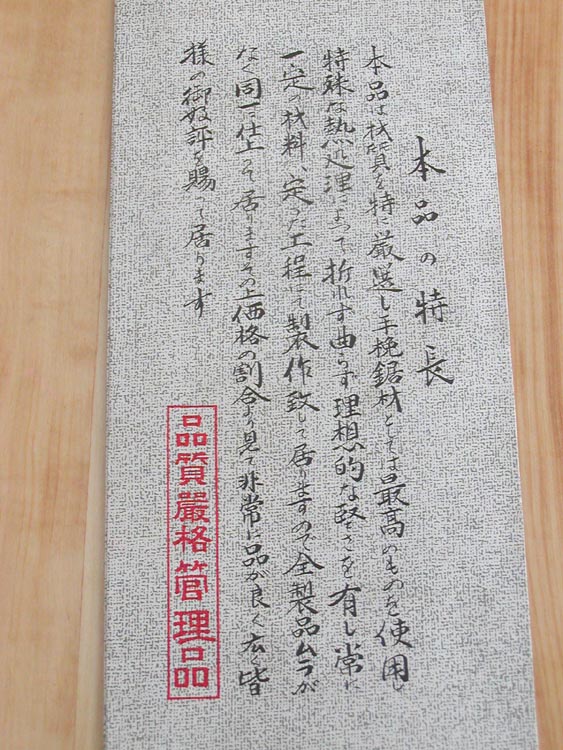 本品の特長
本品は材質を特に厳選し手挽鋸材としては最高のものを使用し
特殊な熱処理によって折れず曲らず理想的な堅さを有し常に
一定の材料、定った工程にて製作致して居りますので全製品ムラが
なく同一に仕上って居りますその上価格の割合より見て非常に品が良く広く皆
様の御好評を賜って居ります
品質嚴格管理品